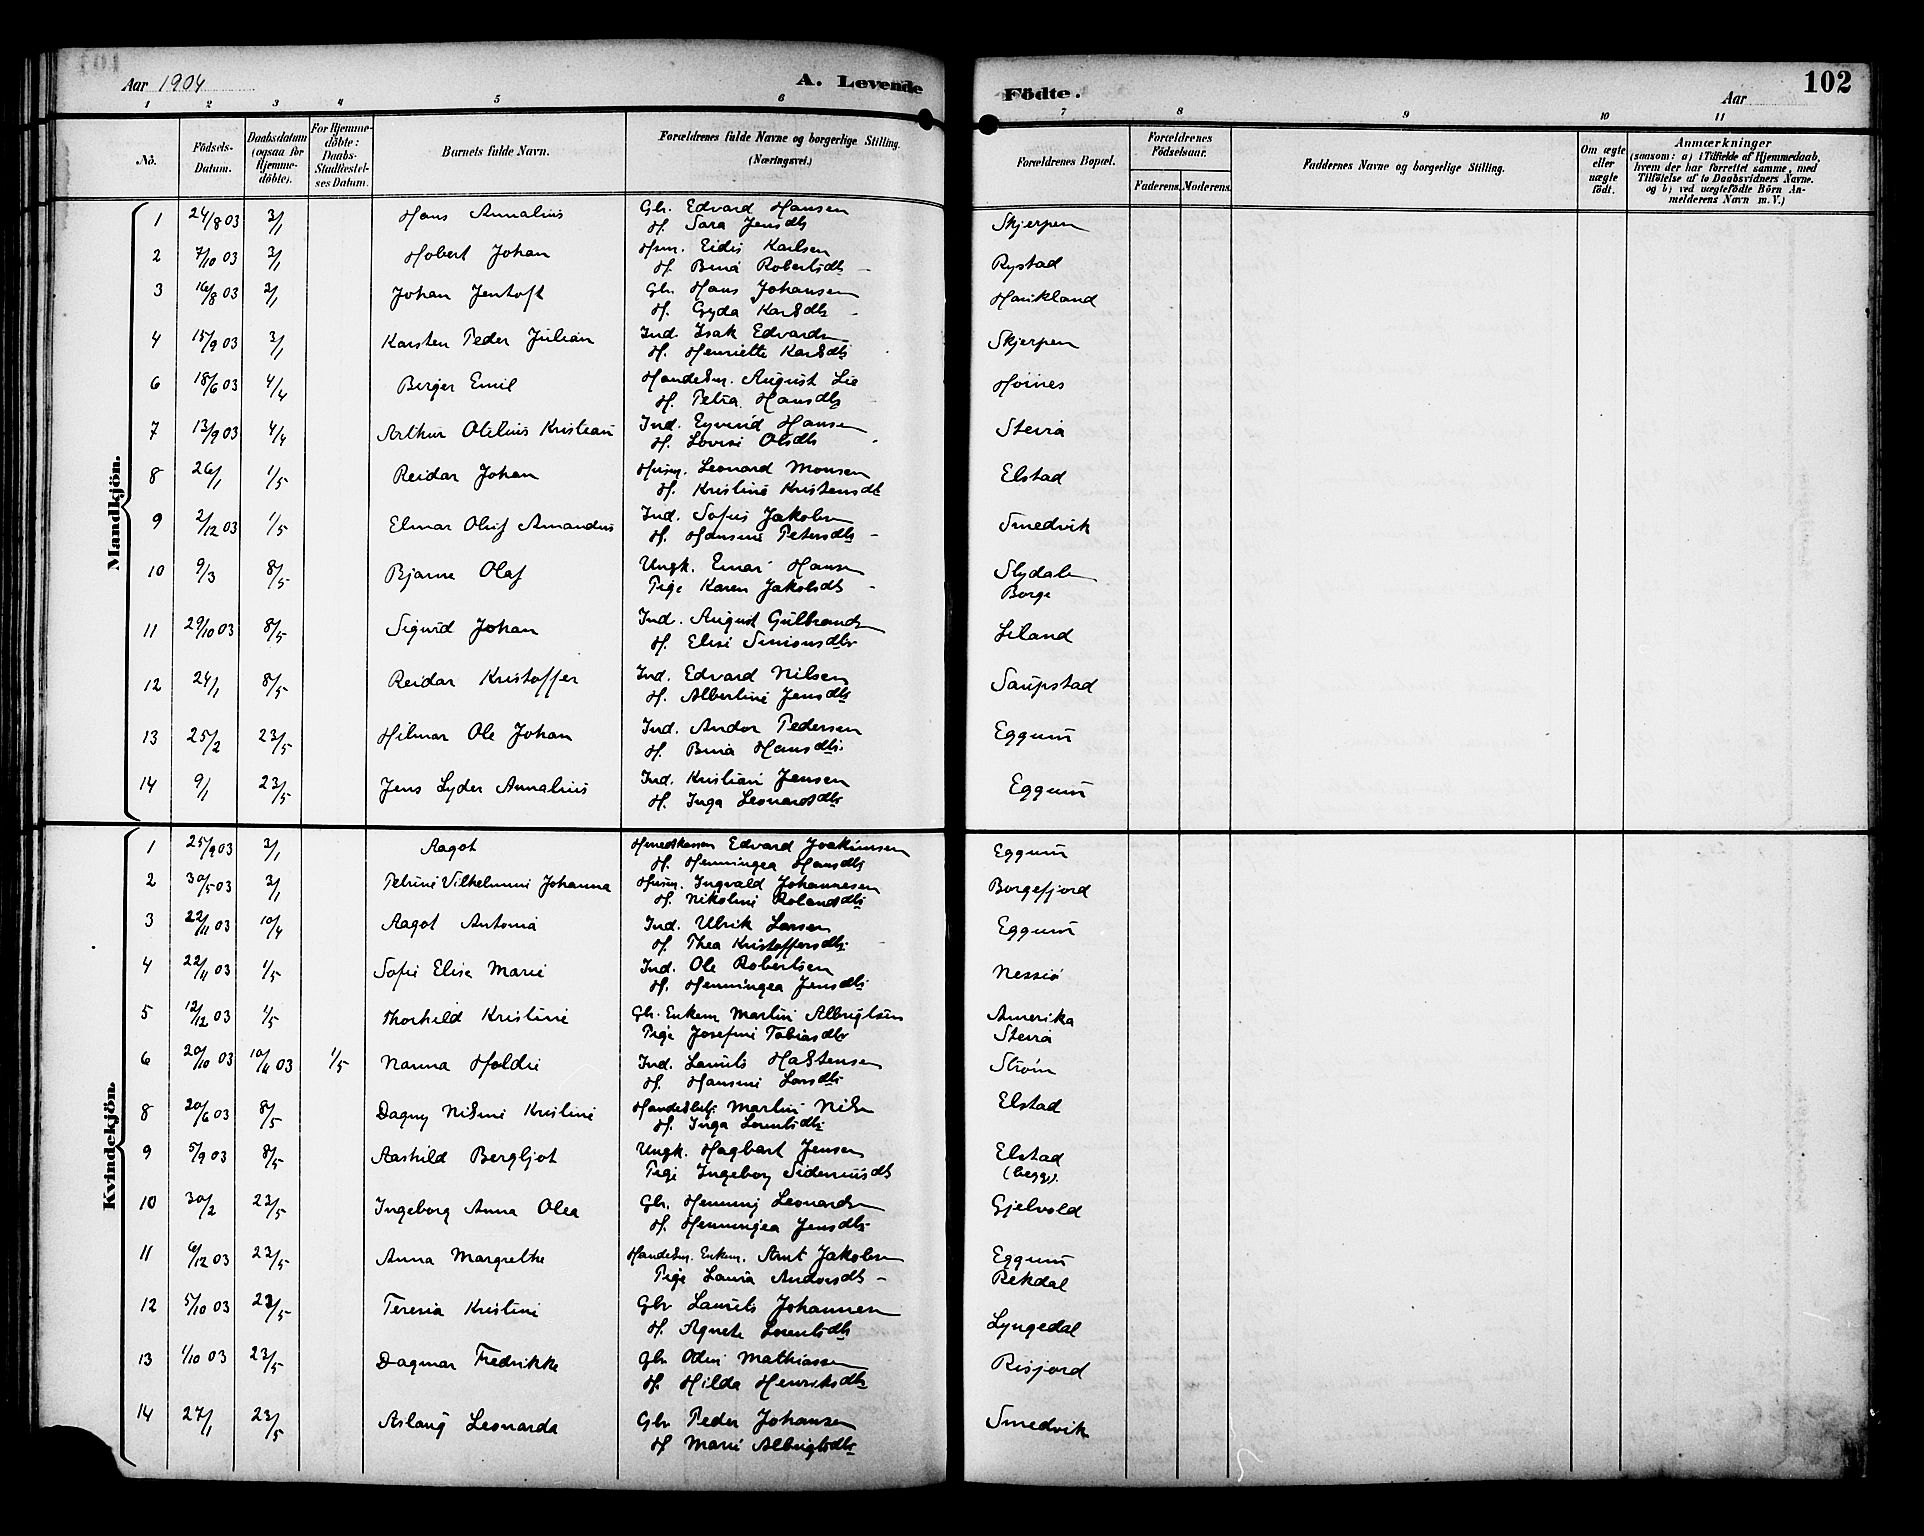 Aar 1904 A. Levende Födte. Aar 102
1 2 3 4 5 6 7 8 9 10 11
No. Födsels-Datum. Daabsdatum (ogsaa for Hjemme-döbte). For Hjemme-döbte: Daabs-Stadfæstel-ses Datum. Barnets fulde Navn. Forældrenes fulde Navne og borgerlige Stilling. (Næringsvei.) Forældrenes Bopæl. Forældrenes Födselsaar. Faderens. Moderens. Faddernes Navne og borgerlige Stilling. Om ægte eller uægte födt. Anmærkninger (saasom: a) i Tilfælde af Hjemmedaab, hvem der har forrettet samme, med Tilföielse af to Daabsvidners Navne. og b) ved uægtefödte Börn An-melderens Navn m. V.)
Mandkjön.
1 24/8 03 3/1 Hans Annalius Gbr. Edvard Hansen Skjerpen
H. Sara Jensdtr
2 7/10 03 3/1 Hobert Johan Husm. Eidis Karlsen Rystad
H. Bina Robertsdtr
3 16/8 03 3/1 Johan Jentoft Gbr. Hans Johansen Haukland
H. Gyda Karlsdtr
4 15/9 03 3/1 Karsten Peder Julian Ind. Isak Edvards Skjerpen
H. Henriette Karlsdtr
6 18/6 03 4/4 Birger Emil Handelsm. August Lie Höines
H. Petra Hansdtr
7 13/9 03 4/4 Arthur Otelius Kristian Ind. Eyvind Hansen Steira
H. Lovise Olsdtr
8 26/1 1/5 Reidar Johan Husm. Leonard Monsen Elstad
H. Kristine Kristensdt
9 2/12 03 1/5 Elmar Oluf Amandus Ind. Sofus Jakobsen Smedvik
H. Hansine Petersdtr
10 9/3 8/5 Bjarne Olaf Ungk. Einar Hansen Slydalen
Pige Karen Jakobsdtr Borge
11 29/10 03 8/5 Sigurd Johan Ind. August Gulbrands Liland
H. Elise Simonsdtr
12 24/1 8/5 Reidar Kristoffer Ind. Edvard Nilsen Saupstad
H. Albertine Jensdtr
13 25/2 23/5 Hilmar Ole Johan Ind. Andor Pedersen Eggum
H. Bina Hansdtr
14 9/1 23/5 Jens Lyder Annalius Ind. Kristian Jensen Eggum
H. Inga Leonardsdtr
Kvindekjön.
1 25/9 03 3/1 Aagot Edvard Joakimsen Eggum
H. Henningea Hansdtr
2 30/5 03 3/1 Petrine Vilhelmine Johanna Husm. Ingvald Johannesen Borgefjord
H. Nikoline Rolandsdtr
3 22/11 03 10/4 Aagot Antonia Ind. Ulrik Larsen Eggum
H. Thea Kristoffersdtr
4 22/11 03 1/5 Sofie Elise Marie Ind. Ole Robertsen Nessiø
H. Henningea Jensdtr
5 12/12 03 1/5 Thorhild Kristine Gbr. Enkem. Martin Albrigtsen Amerika
Pige Josefine Tobiasdtr Steira
6 20/10 03 10/11 03 1/5 Nanna Holdis Ind. Laurits Halstensen Strøm
H. Hansine Larsdtr
8 20/6 03 8/5 Dagny Nilsine Kristine Handelsbetj. Martin Nilsen Elstad
H. Inga Lorentsdtr
9 5/9 03 8/5 Aashild Bergljot Ungk. Hagbart Jensen Elstad
Pige Ingeborg Sideniusdt (begge).
10 30/2 23/5 Ingeborg Anna Olea Gbr. Henning Leonards Gjelvold
H. Henningea Jensdtr
11 6/12 03 23/5 Anna Margrethe Handelsm. Enkem. Arnt Jakobsen Eggum
Pige Laura Andorsdtr Rekdal
12 5/10 03 23/5 Teresia Kristine Gbr Laurits Johannesen Lyngedal
H. Agnete Lorentsdtr
13 1/10 03 23/5 Dagmar Fredrikke Gbr Odin Mathiassen Risjord
H. Hilda Henriksdtr
14 27/1 23/5 Aslaug Leonarda Gbr Peder Johansen Smedvik
H Marie Albrigtsdtr